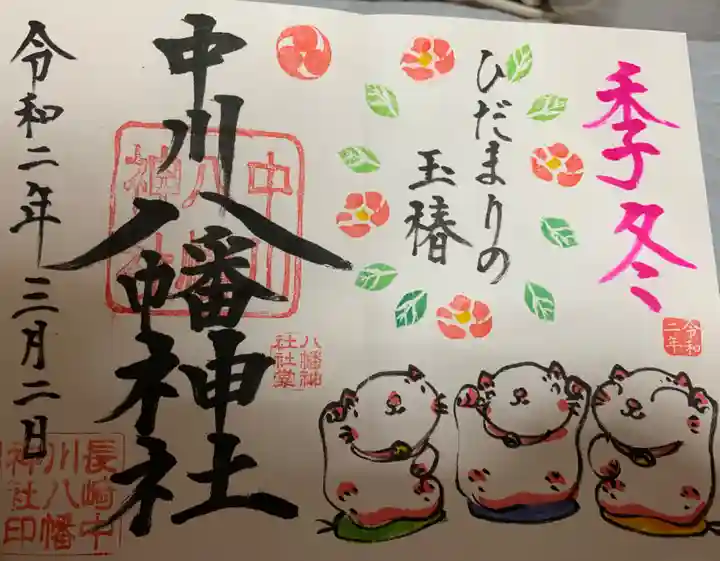 季冬
ひだまりの
玉椿
令和
二年
中川八幡神社
八幡神
社社掌
令和二年三月二日
長崎中
川八幡
神社印